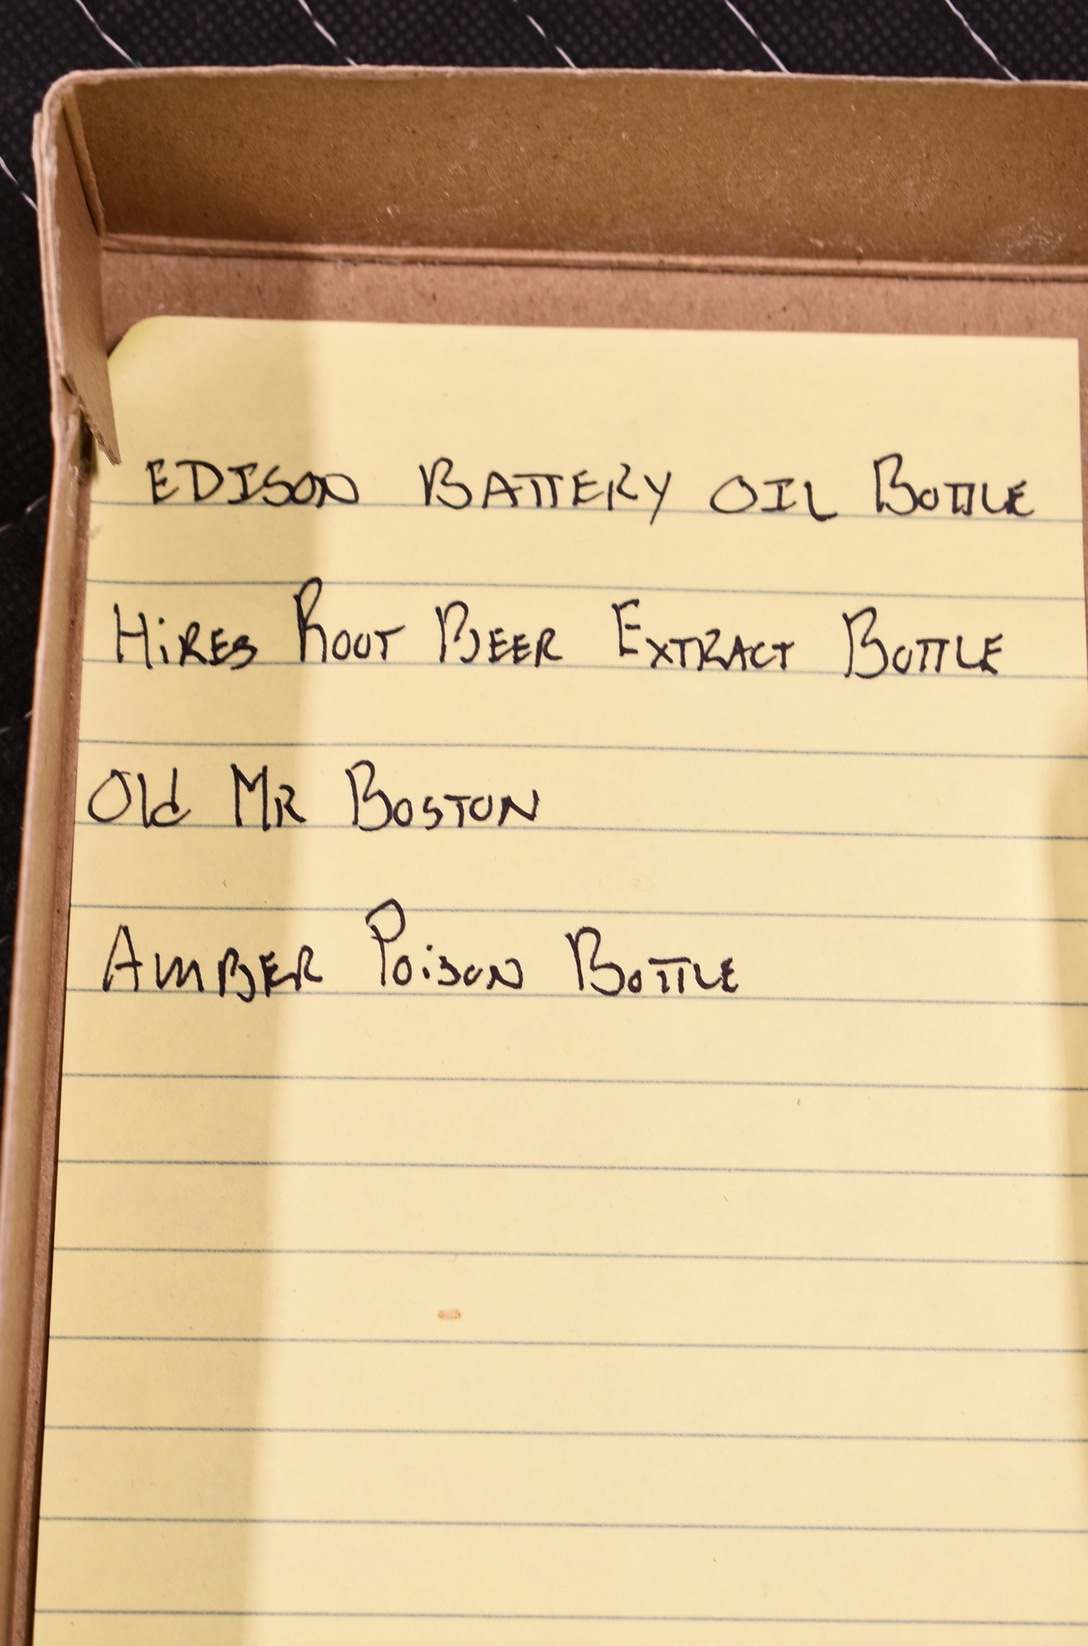 EDISON BATTERY OIL BOTTLE
HiRES ROOT BEER EXTRACT BOTTLE
Old MR BOSTON
AMBER POiSON BOTTLE